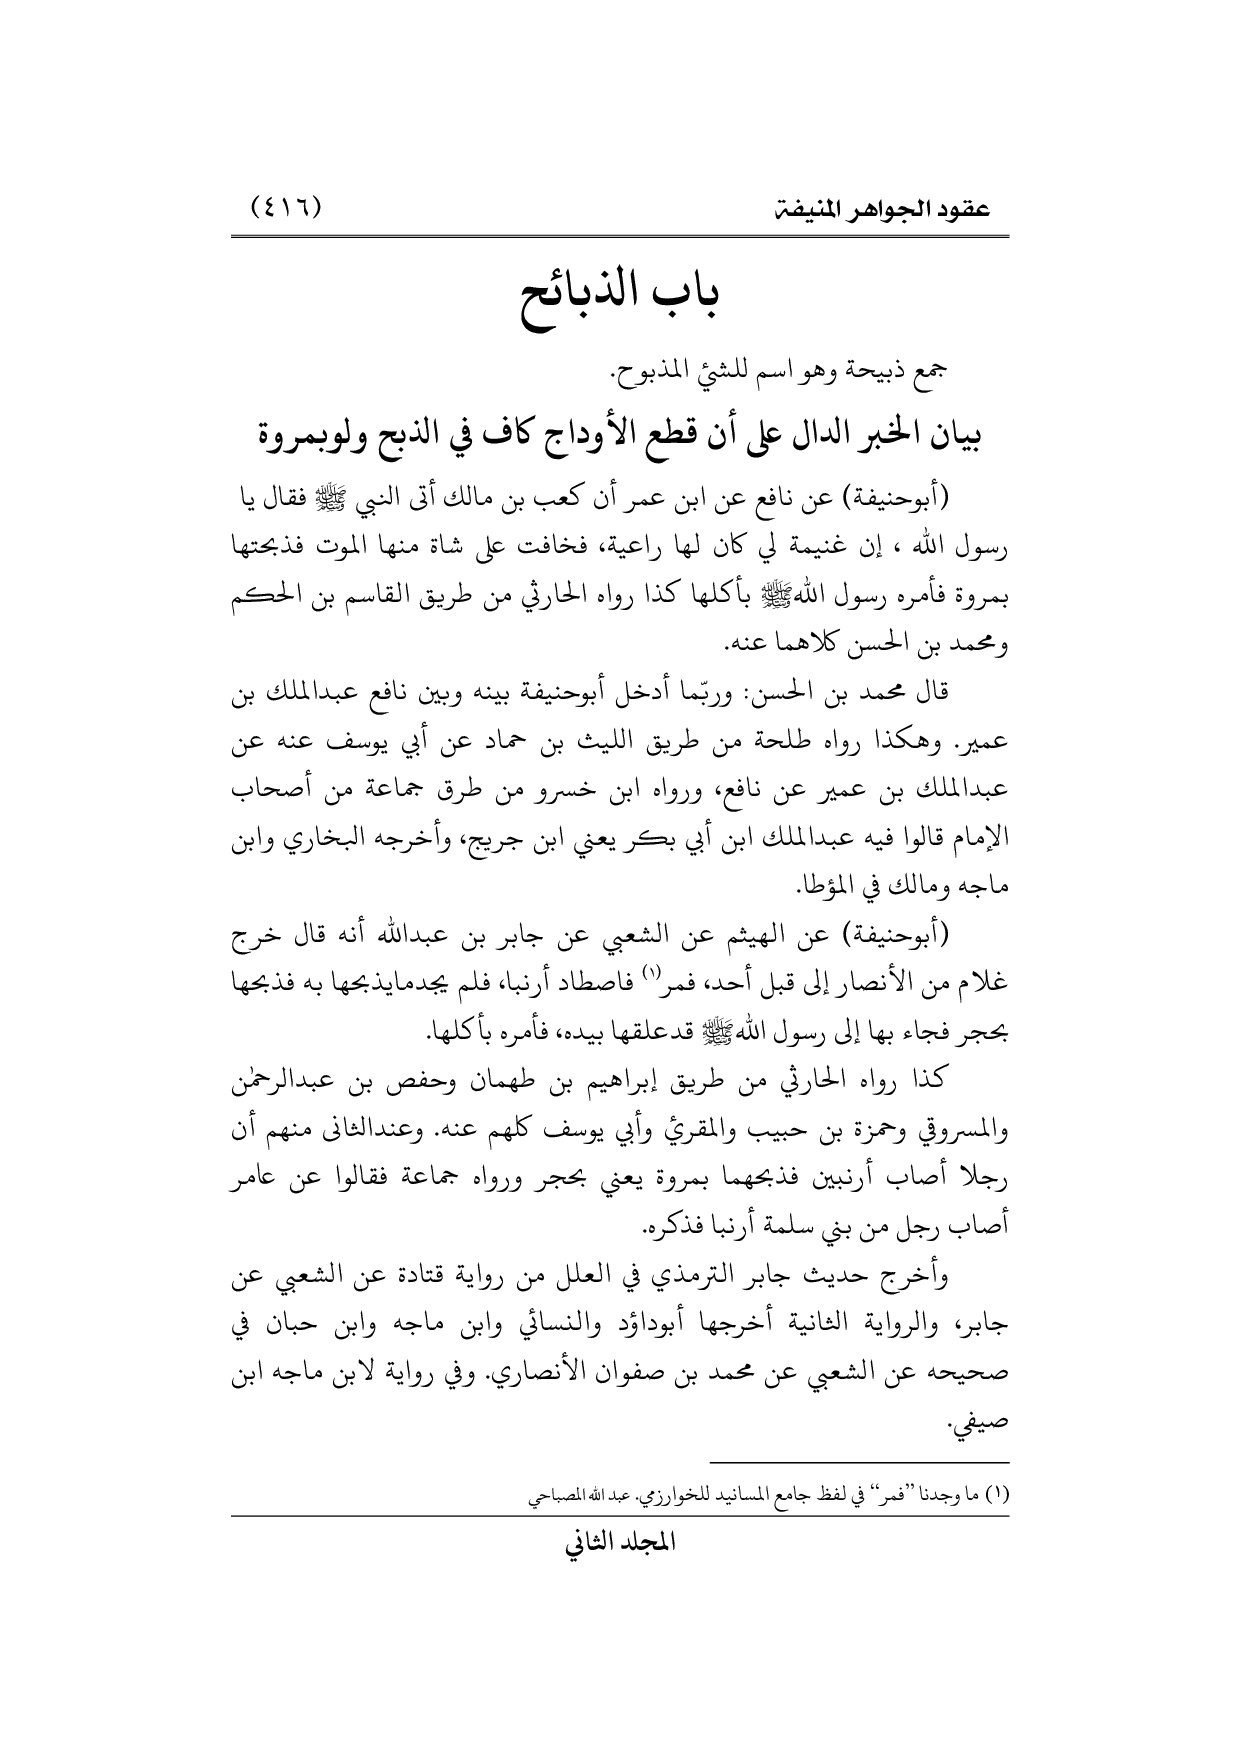 عقود الجواهر المنيفة (٤١٦)
باب الذبائح
جمع ذبيحة وهو اسم للشئ المذبوح.
بيان الخبر الدال على أن قطع الأوداج كاف في الذبح ولوبمروة
(أبوحنيفة) عن نافع عن ابن عمر أن كعب بن مالك أتى النبي ﷺ فقال يا
رسول الله ، إن غنيمة لي كان لها راعية، فخافت على شاة منها الموت فذبحتها
بمروة فأمره رسول اللهﷺ بأكلها كذا رواه الحارثي من طريق القاسم بن الحكم
ومحمد بن الحسن كلاهما عنه.
قال محمد بن الحسن: وربّما أدخل أبوحنيفة بينه وبين نافع عبدالملك بن
عمير. وهكذا رواه طلحة من طريق الليث بن حماد عن أبي يوسف عنه عن
عبدالملك بن عمير عن نافع، ورواه ابن خسرو من طرق جماعة من أصحاب
الإمام قالوا فيه عبدالملك ابن أبي بكر يعني ابن جريج، وأخرجه البخاري وابن
ماجه ومالك في المؤطا.
(أبوحنيفة) عن الهيثم عن الشعبي عن جابر بن عبدالله أنه قال خرج
غلام من الأنصار إلى قبل أحد، فمر(١) فاصطاد أرنبا، فلم يجدمايذبحها به فذبحها
بحجر فجاء بها إلى رسول اللهﷺ قدعلقها بيده، فأمره بأكلها.
كذا رواه الحارثي من طريق إبراهيم بن طهمان وحفص بن عبدالرحمٰن
والمسروقي وحمزة بن حبيب والمقرئ وأبي يوسف كلهم عنه. وعندالثانى منهم أن
رجلا أصاب أرنبين فذبحهما بمروة يعني بحجر ورواه جماعة فقالوا عن عامر
أصاب رجل من بني سلمة أرنبا فذكره.
وأخرج حديث جابر الترمذي في العلل من رواية قتادة عن الشعبي عن
جابر، والرواية الثانية أخرجها أبوداؤد والنسائي وابن ماجه وابن حبان في
صحيحه عن الشعبي عن محمد بن صفوان الأنصاري. وفي رواية لابن ماجه ابن
صيفي.
(١) ما وجدنا ”فمر“ في لفظ جامع المسانيد للخوارزمي. عبد الله المصباحي
المجلد الثاني